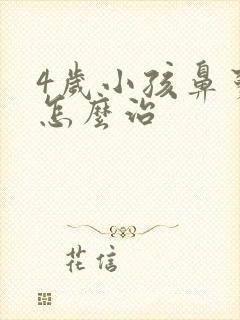 4歲小孩鼻
怎麼治
花信